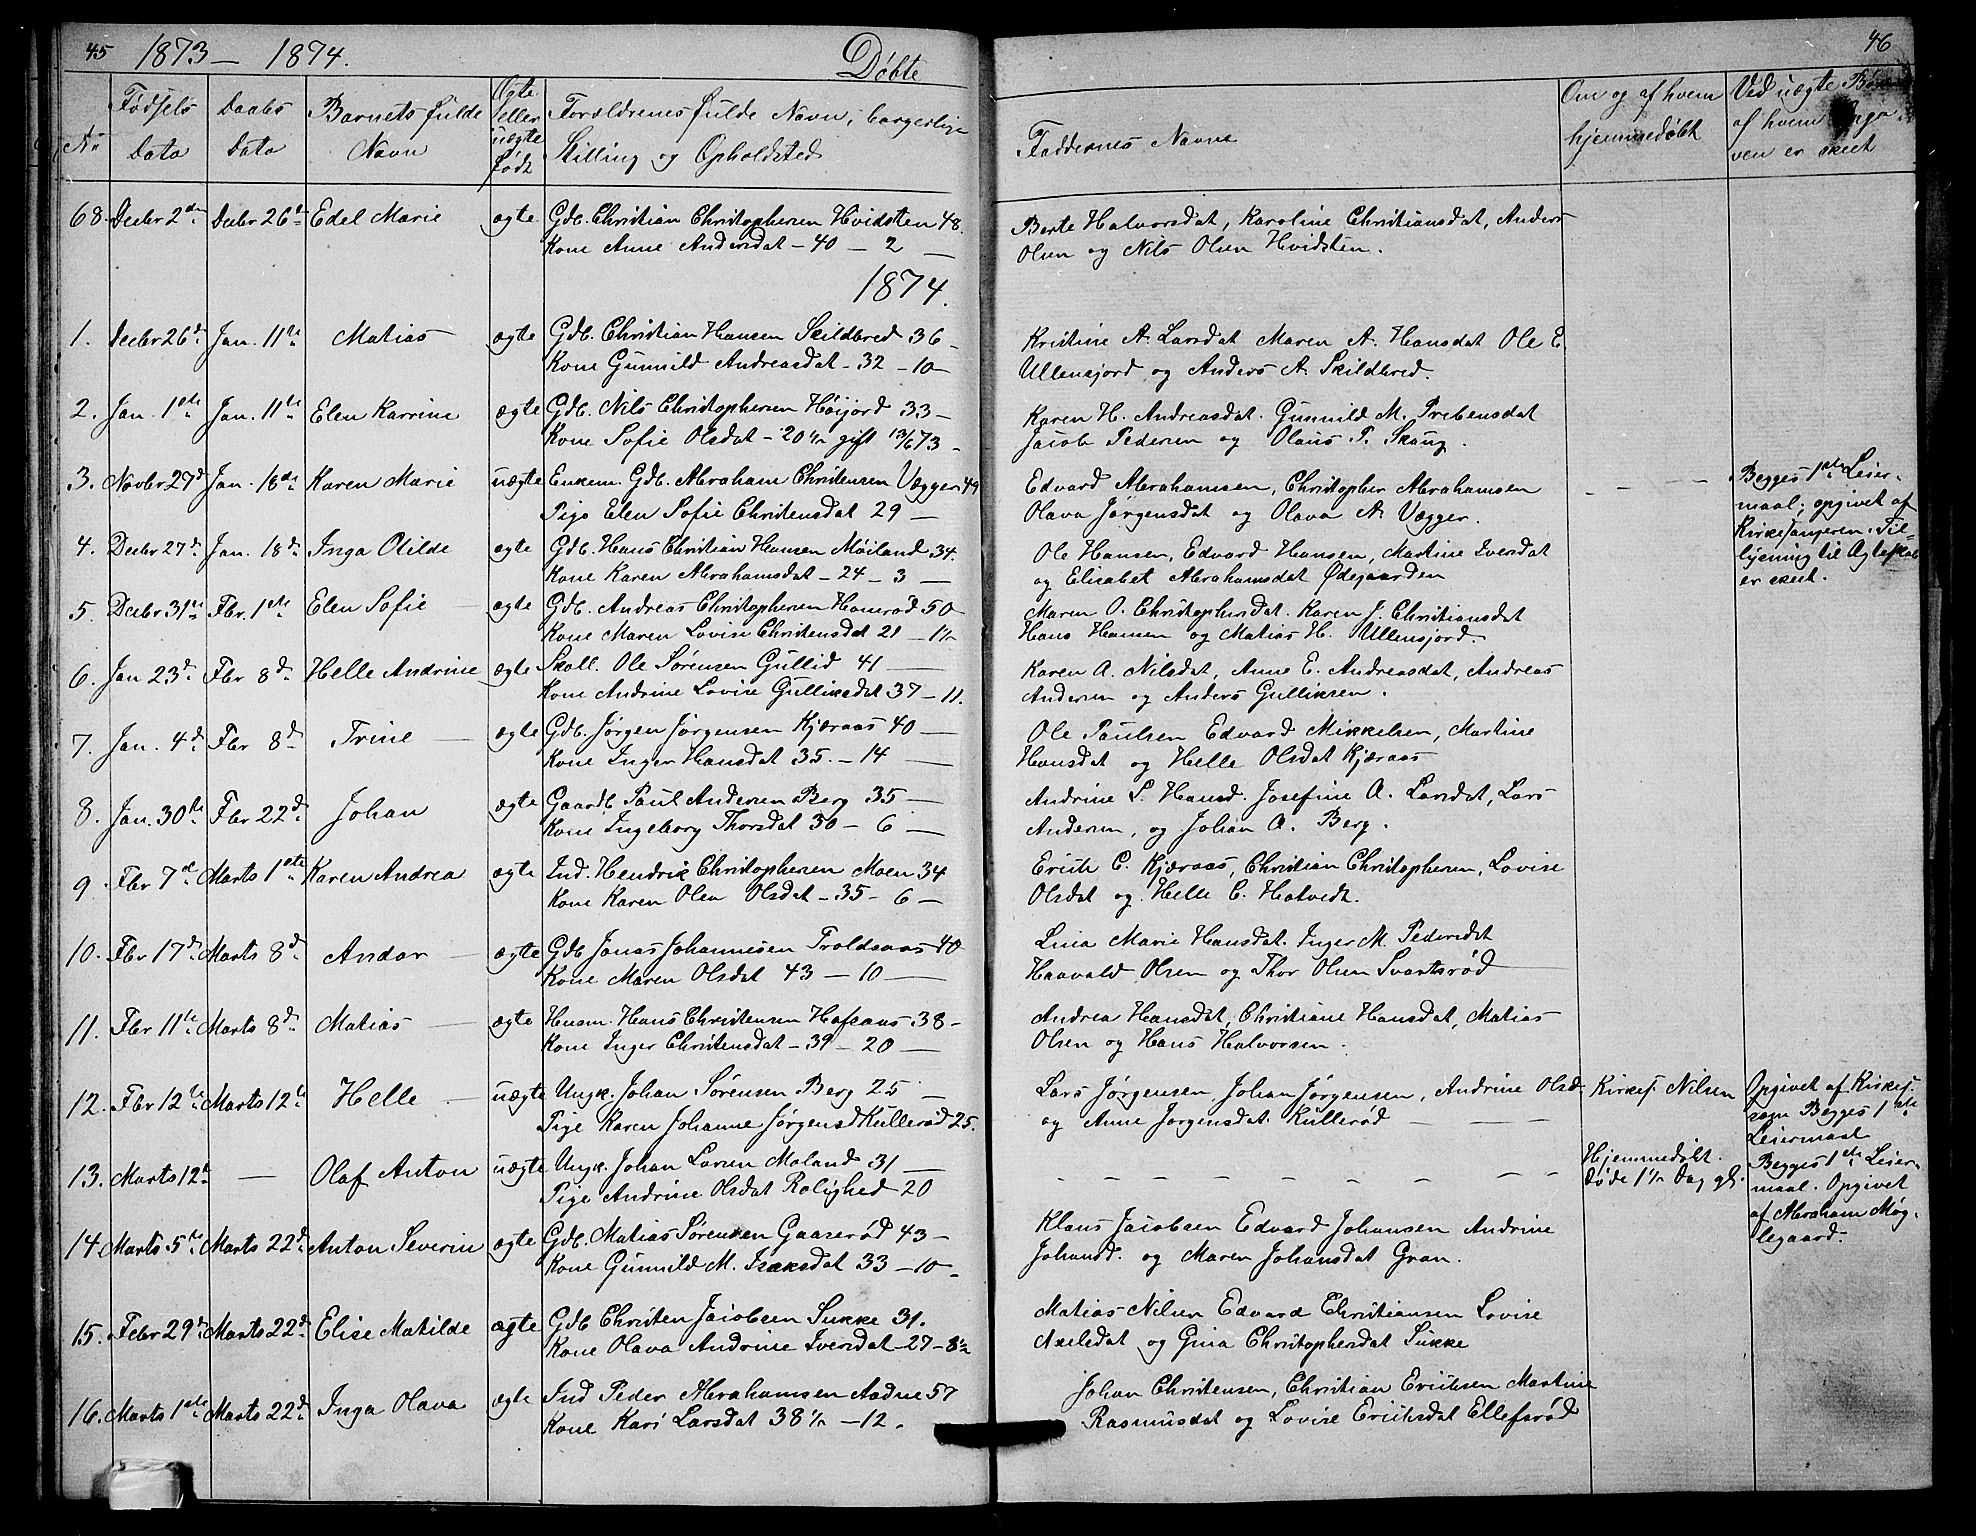 45 1873 — 1874. Døbte
No Fødsels Dato Daabs Dato Barnets fulde Navn Ægte eller uægte født Forældrenes fulde Navn, borgerlige Stilling og Opholdsted
68. Decbr 2den Decbr 26de Edel Marie ægte Gdb. Christian Christophersen Hvidsten 48.
Kone Anne Andersdat – 40 – 2 —
1874.
1. Decbr 26de Jan. 11te Matias ægte Gdb. Christian Hansen Skildbred 36 –
Kone Gunnild Andreasdat – 32 – 10 –
2. Jan. 1ste Jan. 11te Elen Karrine ægte Gdb. Nils Christophersen Høijord 33 –
Kone Sofie Olsdat – 20 1/2 gift 13/6 73 –
3. Novbr 27d Jan. 18de Karen Marie uægte Enkem. Gdb. Abraham Christensen Vegger 49
Pige Elen Sofie Christensdat 29 —
4. Decbr 27d Jan. 18de Inga Otilde ægte Gdb. Hans Christian Hansen Møiland 34.
Kone Karen Abrahamsdat – 24 – 3 —
5. Decbr 31te Fbr. 1ste Elen Sofie ægte Gdb. Andreas Christophersen Honerød 50
Kone Maren Lovise Christensdat 21 – 1 1/2
6. Jan 23d Fbr 8d Helle Andrine ægte Skoll. Ole Sørensen Gullid 41 —
Kone Andrine Lovise Gulliksdat 37 – 11.
7. Jan. 4d Fbr 8d Trine ægte Gdb. Jørgen Jørgensen Kjæraas 40 —
Kone Inger Hansdat 35. – 14 —
8. Jan. 30te Fbr 22d Johan ægte Gaardb. Paul Andersen Berg 35 —
Kone Ingeborg Thorsdat 30 – 6 —
9. Fbr 7d Marts 1ste Karen Andrea ægte Ind. Hendrik Christophersen Moen 34
Kone Karen Olea Olsdat – 35 – 6 —
10. Fbr 17d Marts 8d Andor ægte Gdb. Jonas Johannesen Troldsaas 40
Kone Maren Olsdat 43 – 10 —
11. Fbr 11te Marts 8d Matias ægte Husm. Hans Christensen Hafsaas 38 –
Kone Inger Christensdat – 39 – 20 —
12. Fbr 12te Marts 12te Helle uægte Ungk. Johan Sørensen Berg 25 —
Pige Karen Johanne Jørgensd Kullerød 25.
13. Marts 12te — Olaf Anton uægte Ungk. Johan Larsen Moland 31 —
Pige Andrine Olsdat Rolighed 20
14. Marts 5te Marts 22d Anton Severin ægte Gdb. Matias Sørensen Gaaserød 43 –
Kone Gunnild M. Isaksdat 33 – 10 –
15. Febr 29de Marts 22d Elise Matilde ægte Gdb Christen Jacobsen Sukke 31.
Kone Olava Andrine Iversdat – 27 – 8 1/2
16. Marts 1ste Marts 22d Inga Olava ægte Ind Peder Abrahamsen Aadne 57
Kone Kari Larsdat 38 1/2 – 12.
46
Faddernes Navne Om og af hvem hjemmedøbt Ved uægte Børn af hvem ven er skeet
Berte Halvorsdat, Karoline Christiansdat, Anders
Olsen og Nils Olsen Hvidsten.
Kristine A. Larsdat Maren A. Hansdat Ole E.
Ullensjord og Anders A. Skildbred.
Karen H. Andreasdat. Gunnild M. Prebensdat
Jacob Pedersen og Olaus P. Skaug.
Edvard Abrahamsen, Christopher Abrahamsen
Olava Jørgensdat og Olava A. Vegger.
Begges 1ste Leier-
maal; opgivet af
Kirkesangeren. Til-
lysning til Ægteskab
er skeet.
Ole Hansen, Edvard Hansen, Martine Iversdat
og Elisabet Abrahamsdat Ødegaarden
Maren O. Christophersdat. Karen J. Christiansdat
Hans Hansen og Matias H. Ullensjord.
Karen A. Nilsdat, Anne E. Andreasdat, Andreas
Andersen og Anders Gulliksen.
Ole Paulsen Edvard Mikkelsen, Martine
Hansdat og Helle Olsdat Kjæraas
Andrine L. Hansd. Josefine A. Larsdat, Lars
Andersen, og Johan A. Berg.
Erich C. Kjæraas, Christian Christophersen, Lovise
Olsdat og Helle C. Hatvedt.
Lina Marie Hansdat. Inger M. Pedersdat
Haavald Olsen og Thor Olsen Svartsrød
Andrea Hansdat, Christiane Hansdat, Matias
Olsen og Hans Halvorsen.
Lars Jørgensen, Johan Jørgensen, Andrine Olsd. Kirkes. Nilsen
og Anne Jørgensdat. Kullerød
Opgivet af Kirkes.
som Begges 1ste
Leiermaal
Hjemmedøbt.
Døde 1 1/2 Dag gl.
Begges 1ste Leier-
maal. Opgivet
af Abraham Møg-
legaard.
Klaus Jacobsen Edvard Johansen Andrine
Johansd. og Maren Johansdat Gran.
Matias Nilsen Edvard Christiansen Lovise
Axelsdat og Gina Christophersdat Sukke
Johan Christensen, Christian Erichsen Martine
Rasmusdat og Lovise Erichsdat Ellefsrød